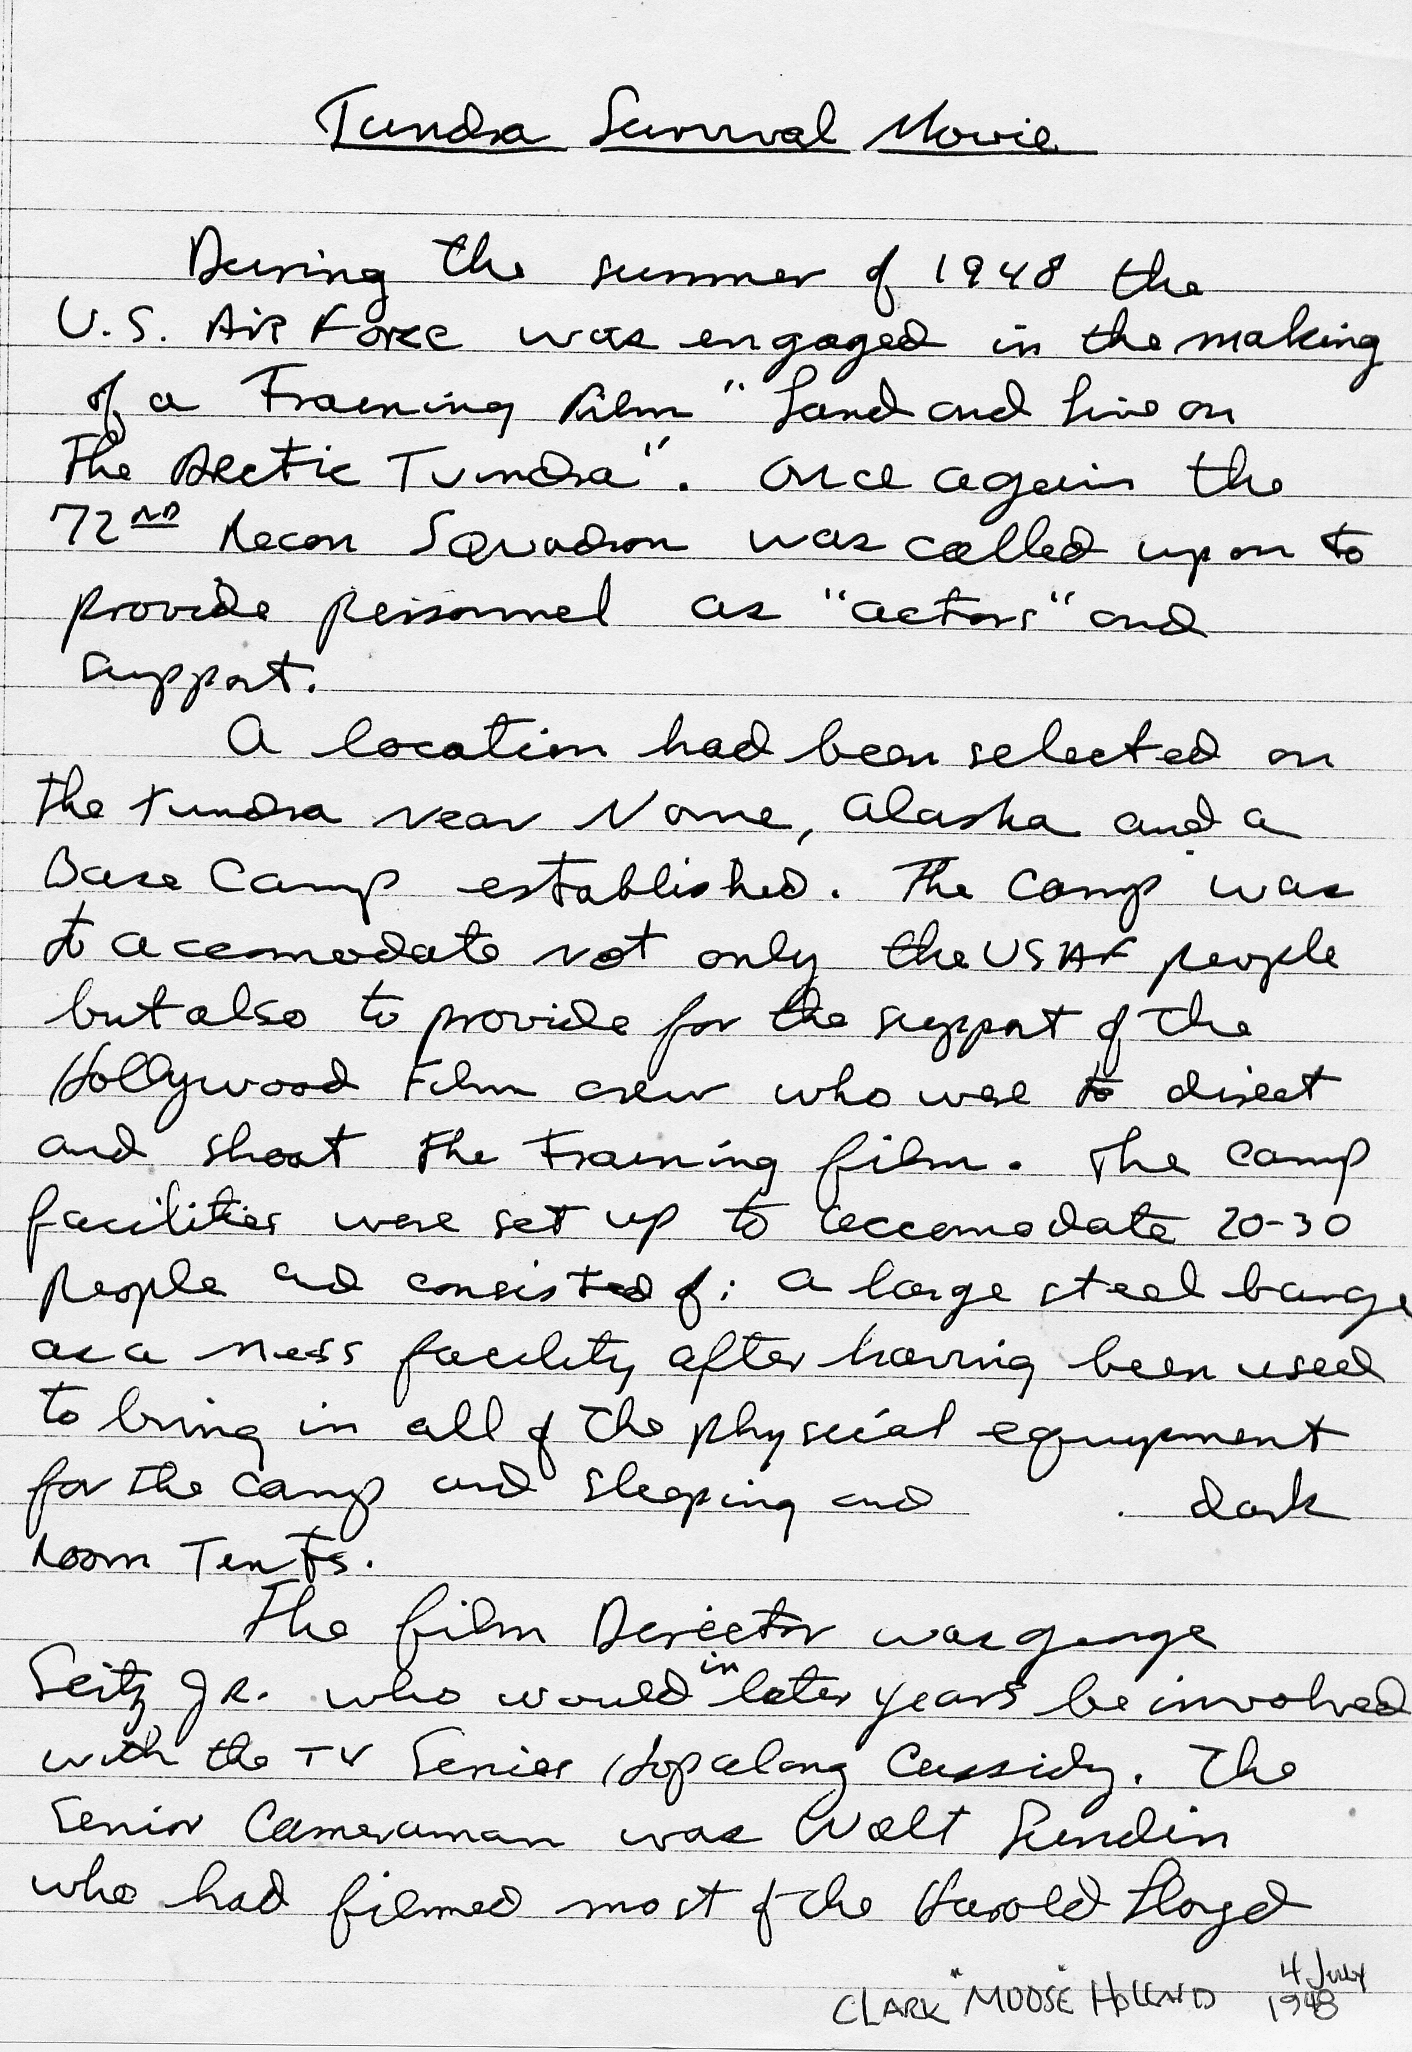 Tundra Survival Movie
During the summer of 1948 the
U.S. Air Force was engaged in the making
of a Training Film "Land and Live on
The Arctic Tundra". Once again the
72ND Recon Squadron was called upon to
provide personnel as "actors" and
support.
A location had been selected on
the tundra near Nome, Alaska and a
Base Camp established. The camp was
to accomodate not only the USAF people
but also to provide for the support of the
Hollywood Film crew who were to direct
and shoot the Training film. The camp
facilities were set up to accomodate 20-30
people and consisted of; a large steel barge
as a mess facility after having been used
to bring in all of the physcial equipment
for the camp and sleeping and dark
room Tents.
The film Director was George
Seitz Jr. who would in later years be involved
with the TV Series Hopalong Cassidy. The
Senior Cameraman was Walt Lundin
who had filmed most of the Harold Lloyd
CLARK "MOOSE" 4 July
1948